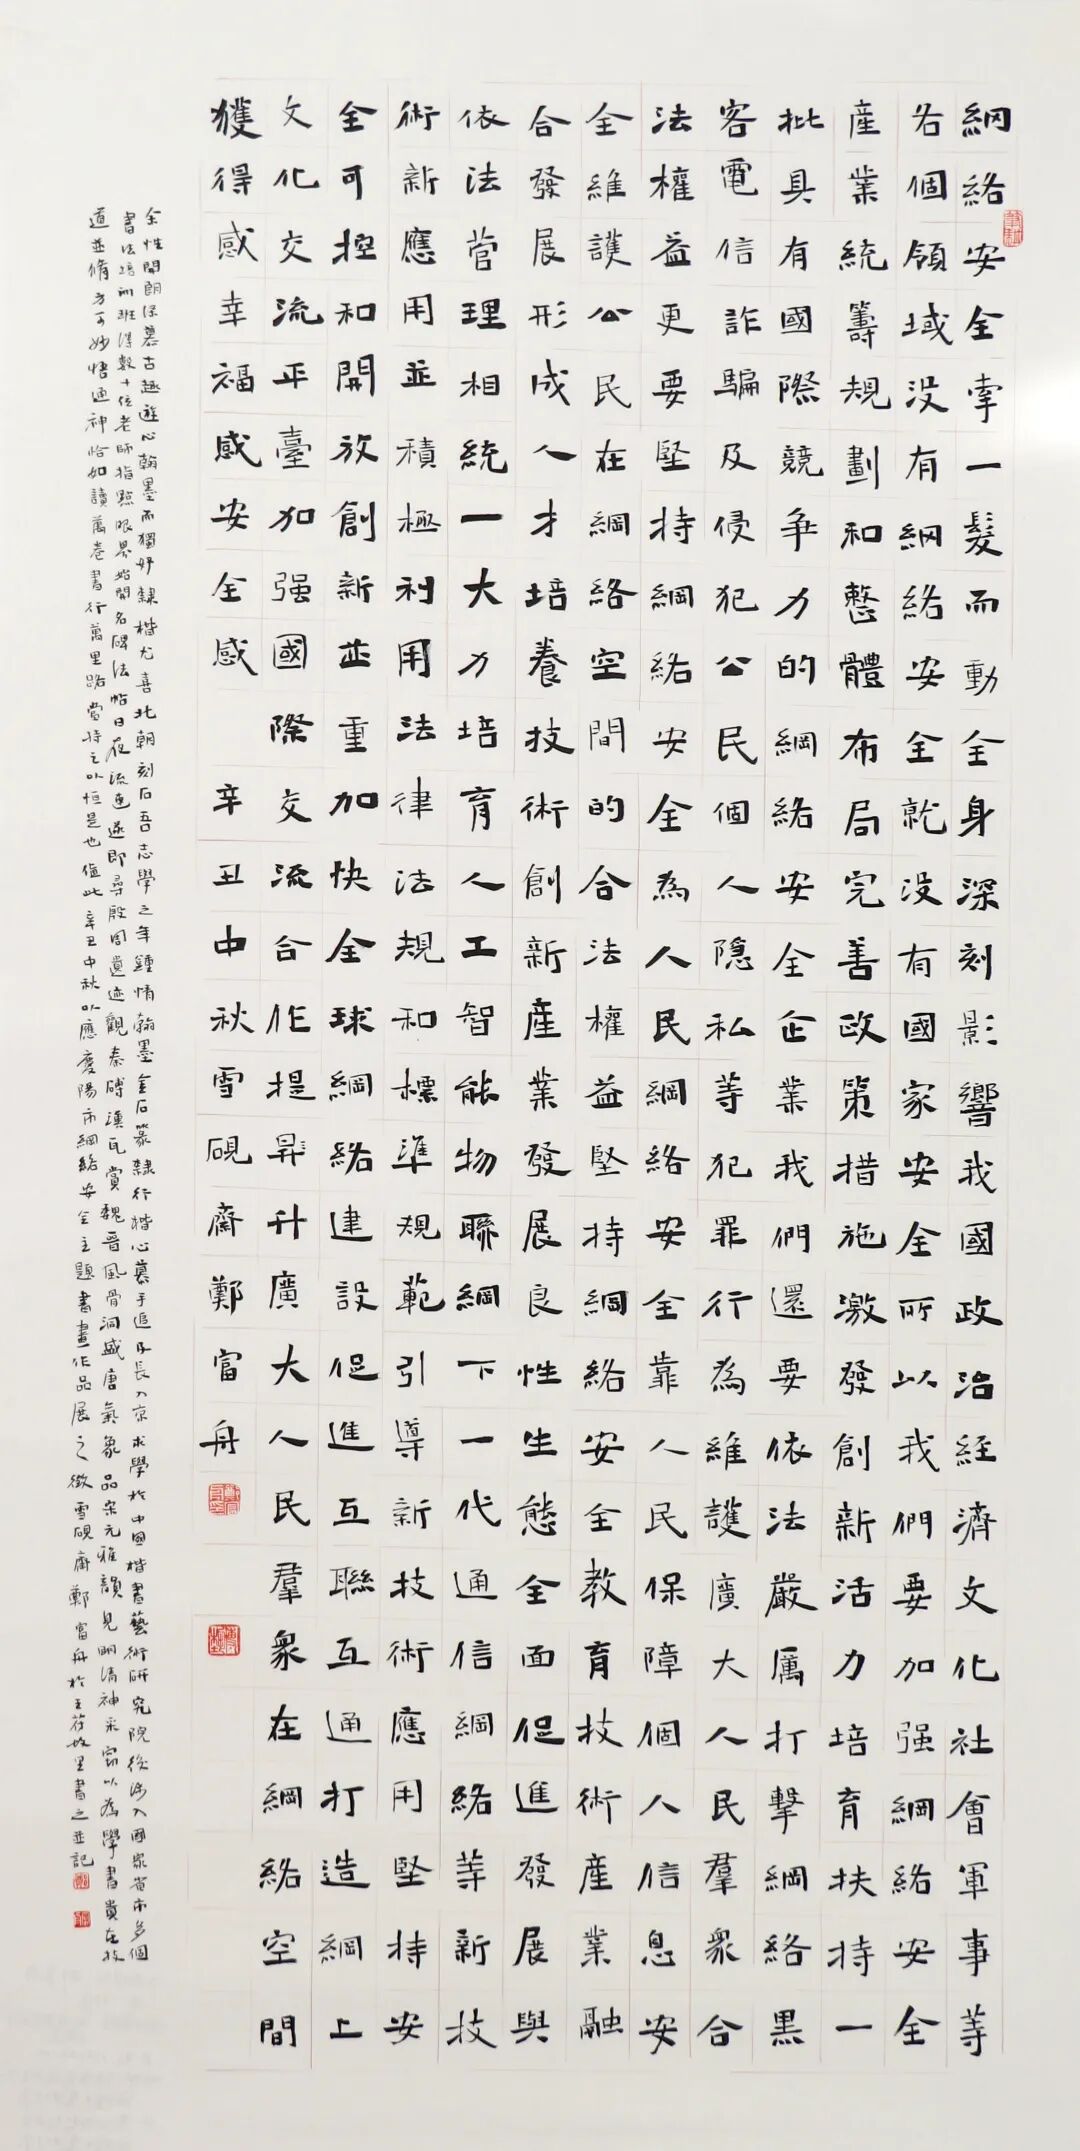 網絡安全牽一髮而動全身深刻影響我國政治經濟文化社會軍事等
各個領域没有網絡安全就没有國家安全所以我們要加强網絡安全
産業統籌規劃和整體布局完善政策措施激發創新活力培育扶持一
批具有國際競争力的網絡安全企業我們還要依法嚴厲打擊網絡黑
客電信詐騙及侵犯公民個人隱私等犯罪行為維護廣大人民羣衆合
法權益更要堅持網絡安全為人民網絡安全靠人民保障個人信息安
全維護公民在網絡空間的合法權益堅持網絡安全教育技術産業融
合發展形成人才培養技術創新産業發展良性生態全面促進發展與
依法管理相統一大力培育人工智能物聯網下一代通信網絡等新技
術新應用並積極利用法律法規和標準規範引導新技術應用堅持安
全可控和開放創新並重加快全球網絡建設促進互聯互通打造網上
文化交流平臺加强國際交流合作提昇升廣大人民羣衆在網絡空間
獲得感幸福感安全感 辛丑中秋雪硯齋鄭富舟
余性開朗深慕古趣遊心翰墨而獨好隸楷尤喜北朝刻石吾志學之年鍾情翰墨金石篆隸行楷心慕手追及長入京求學於中國楷書藝術研究院後涉入國家省市多個
書法培訓班得數十位老師指點眼界始開名碑法帖日夜流連遂即尋殷周遺迹觀秦磚漢瓦賞魏晉風骨洞盛唐氣象品宋元雅韻見明清神采竊以為學書貴在技
道並脩方可妙悟通神恰如讀萬卷書行萬里路當持之以恒是也值此辛丑中秋以應慶陽市網絡安全主題書畫作品展之徵雪硯齋鄭富舟於王符故里書之並記